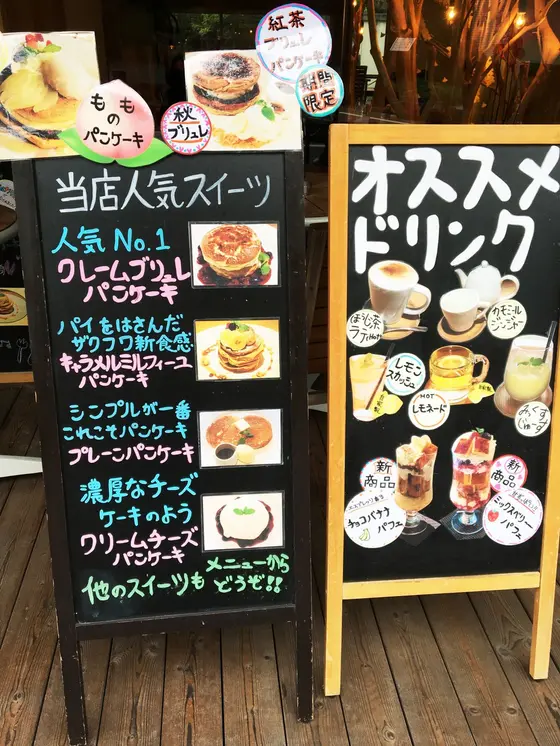 紅茶
ブリュレ
パンケーキ
期間
限定
もも
の
パンケーキ
秋
ブリュレ
当店人気スイーツ
人気 No.1
クレームブリュレ
パンケーキ
パイをはさんだ
ザクフワ新食感
キャラメルミルフィーユ
パンケーキ
シンプルが一番
これこそパンケーキ
プレーンパンケーキ
濃厚なチーズ
ケーキのよう
クリームチーズ
パンケーキ
他のスイーツも
メニューから
どうぞ!!
オススメ
ドリンク
ほうじ茶
ラテ
カモミール
ジンジャー
レモン
スカッシュ
HOT
レモネード
みっくす
じゅーす
新
商品
チョコバナナ
パフェ
新
商品
ミックスベリー
パフェ